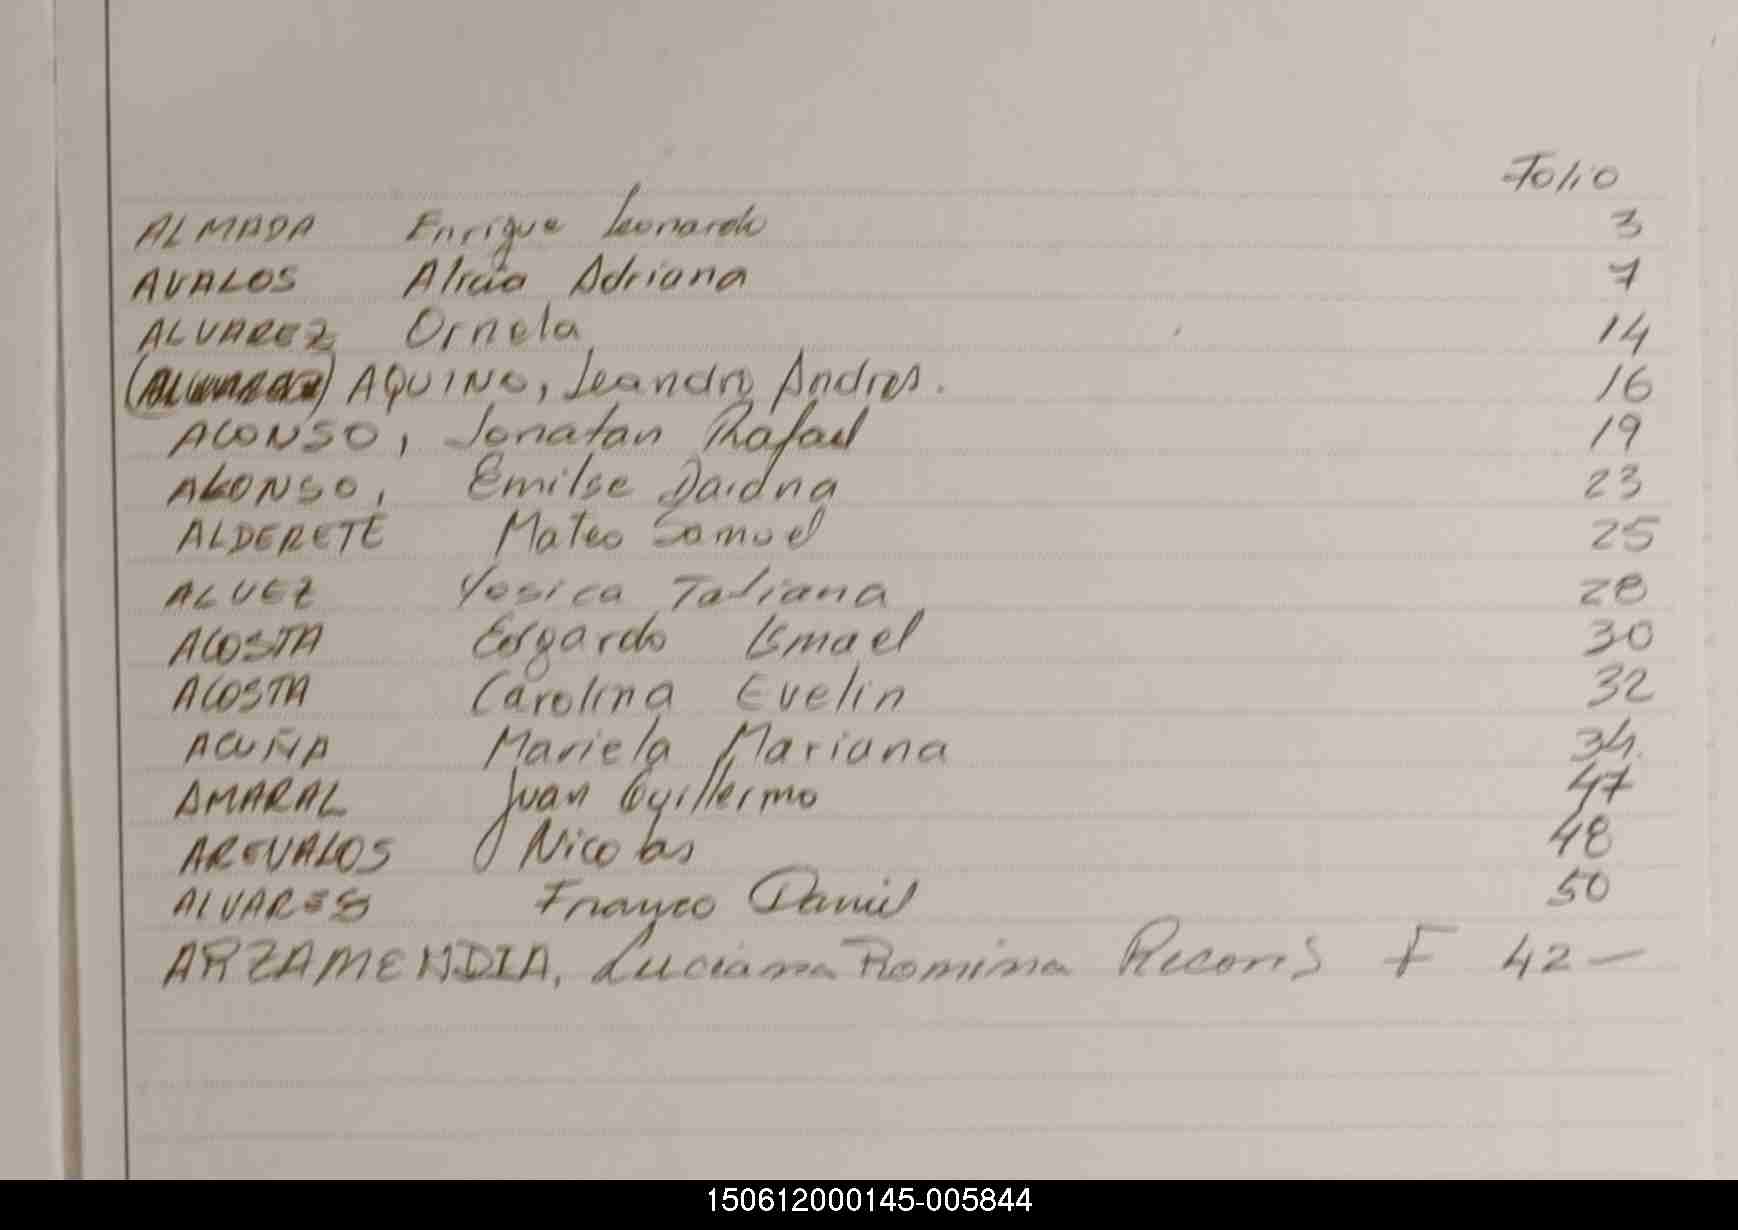 Folio
ALMADA Enrique Leonardo 3
AVALOS Alicia Adriana 7
ALVAREZ Ornela 14
(ALVAREZ) AQUINO, Leandro Andres. 16
ALONSO, Jonatan Rafael 19
ALONSO, Emilse Daiana 23
ALDERETE Mateo Samuel 25
ALVEZ Yesica Tatiana 28
ACOSTA Edgardo Ismael 30
ACOSTA Carolina Evelin 32
ACUÑA Mariela Mariana 34.
AMARAL Juan Guillermo 47
AREVALOS Nicolas 48
ALVARES Franco Daniel 50
ARZAMENDIA, Luciana Romina F 42 —
150612000145-005844